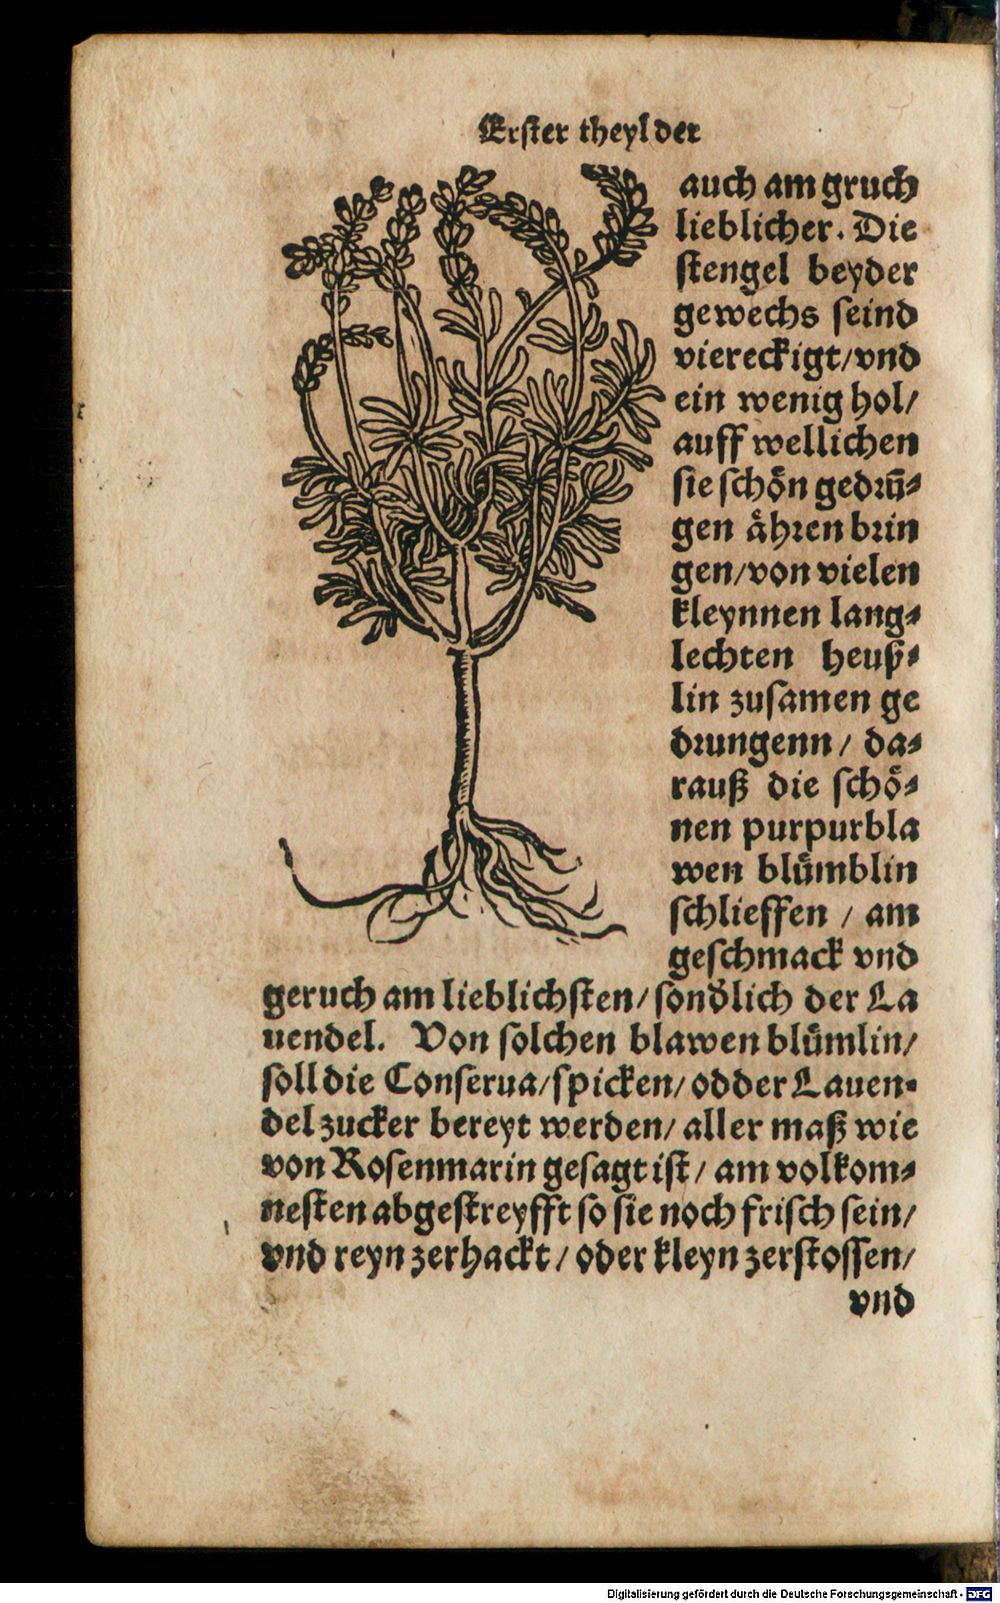 Erster theyl der
auch am gruch
lieblicher. Die
stengel beyder
gewechs seind
viereckigt/vnd
ein wenig hol/
auff wellichen
sie schoͤn gedrū⸗
gen aͤhren brin
gen/von vielen
kleynnen lang⸗
lechten heuß⸗
lin zusamen ge
drungenn/ da⸗
rauß die schoͤ⸗
nen purpurbla
wen bluͤmblin
schlieffen / am
geschmack vnd
geruch am lieblichsten/ sonďlich der La
uendel. Von solchen blawen bluͤmlin/
soll die Conserua/spicken/ odder Lauen⸗
del zucker bereyt werden/ aller maß wie
von Rosenmarin gesagt ist/ am volkom⸗
nesten abgestreyfft so sie noch frisch sein/
vnd reyn zerhackt/ oder kleyn zerstossen/
vnd
Digitalisierung gefördert durch die Deutsche Forschungsgemeinschaft - DFG